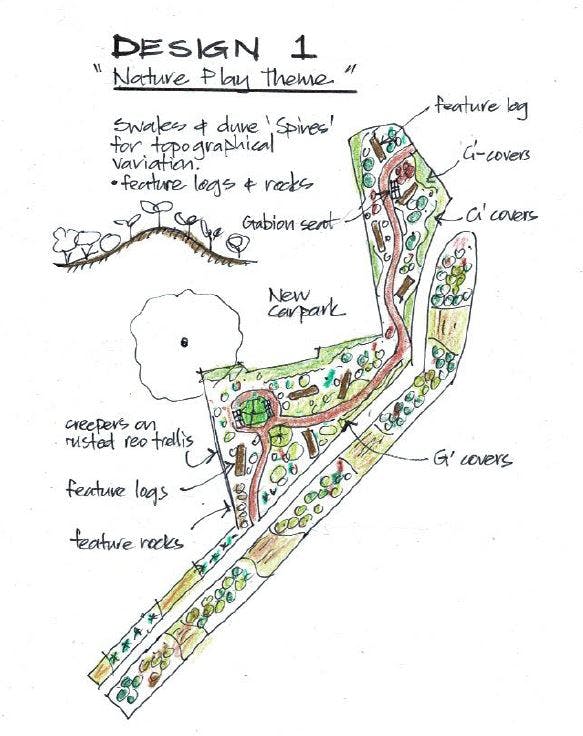 DESIGN 1
"Nature Play Theme"
Swales & dune 'Spines'
for topographical
variation.
• feature logs & rocks
feature log
G'-covers
G' covers
Gabion seat
New
carpark
creepers on
rusted reo trellis
G' covers
feature logs
feature rocks